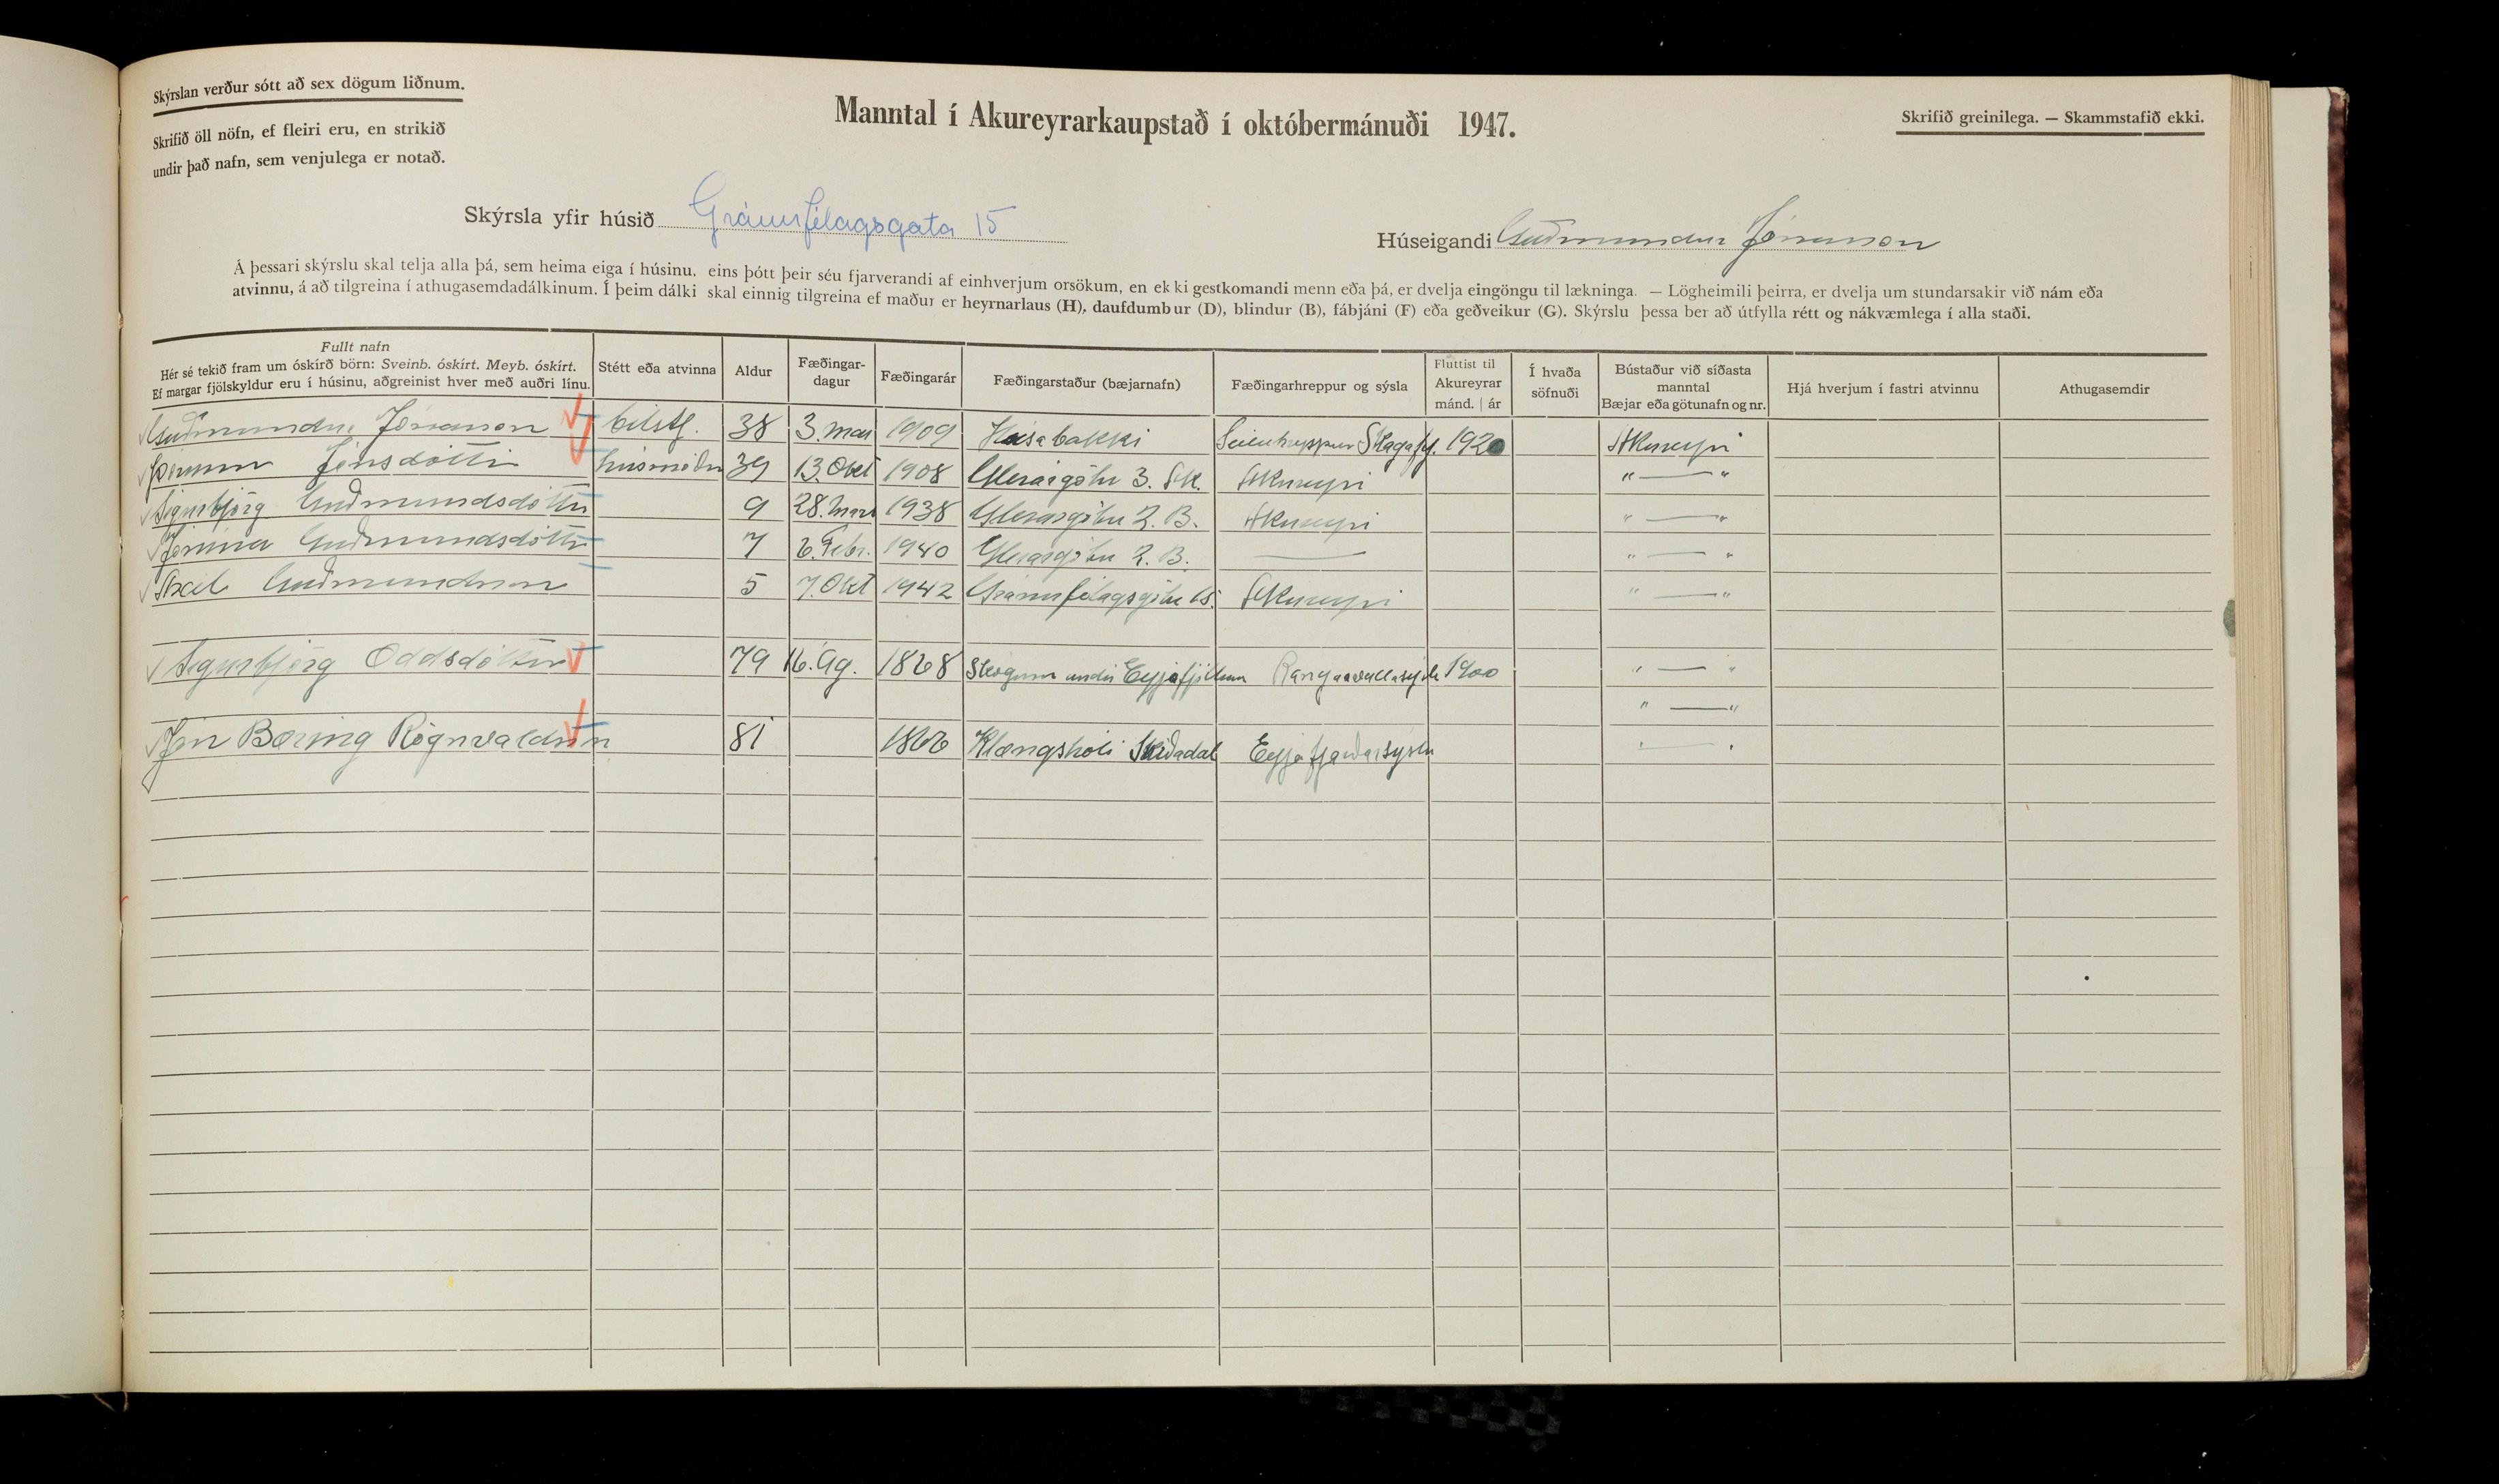 Skýrslan verður sótt að sex dögum liðnum.
Skrifið öll nöfn, ef fleiri eru, en strikið
undir það nafn, sem venjulega er notað.
Manntal í Akureyrarkaupstað í októbermánuði 1947.
Skrifið greinilega. — Skammstafið ekki.
Skýrsla yfir húsið Gránufélagsgata 15
Húseigandi Guðmundur Jónasson
Á þessari skýrslu skal telja alla þá, sem heima eiga í húsinu, eins þótt þeir séu fjarverandi af einhverjum orsökum, en ekki gestkomandi menn eða þá, er dvelja eingöngu til lækninga. — Lögheimili þeirra, er dvelja um stundarsakir við nám eða
atvinnu, á að tilgreina í athugasemdadálkinum. Í þeim dálki skal einnig tilgreina ef maður er heyrnarlaus (H), daufdumbur (D), blindur (B), fábjáni (F) eða geðveikur (G). Skýrslu þessa ber að útfylla rétt og nákvæmlega í alla staði.
Fullt nafn
Hér sé tekið fram um óskírð börn: Sveinb. óskírt. Meyb. óskírt.
Ef margar fjölskyldur eru í húsinu, aðgreinist hver með auðri línu.
Stétt eða atvinna
Aldur
Fæðingar-
dagur
Fæðingarár
Fæðingarstaður (bæjarnafn)
Fæðingarhreppur og sýsla
Fluttist til
Akureyrar
mánd. | ár
Í hvaða
söfnuði
Bústaður við síðasta
manntal
Bæjar eða götunafn og nr.
Hjá hverjum í fastri atvinnu
Athugasemdir
Guðmundur Jónasson bílstj. 38 3. maí 1909 Húsabakki Seiluhreppur Skagafj. 1920 Akureyri
Þórunn Jónsdóttir húsmóðir 39 13. Okt 1908 Glerárgötu 3. Ak. Akureyri " — "
Sigurbjörg Guðmundsdóttir 9 28. Mars 1938 Glerárgötu 2. B. Akureyri " — "
Jónína Guðmundsdóttir 7 6. Febr. 1940 Glerárgötu 2. B. — " — "
Axel Guðmundsson 5 7. Okt 1942 Gránufélagsgötu 15. Akureyri " — "
Sigurbjörg Oddsdóttir 79 16. Ág. 1868 Skógum undir Eyjafjöllum Rangárvallasýslu 1900 " — "
" — "
Jón Bæring Rögnvaldsson 81 1866 Klængshóli Skíðadal Eyjafjarðarsýslu " — "